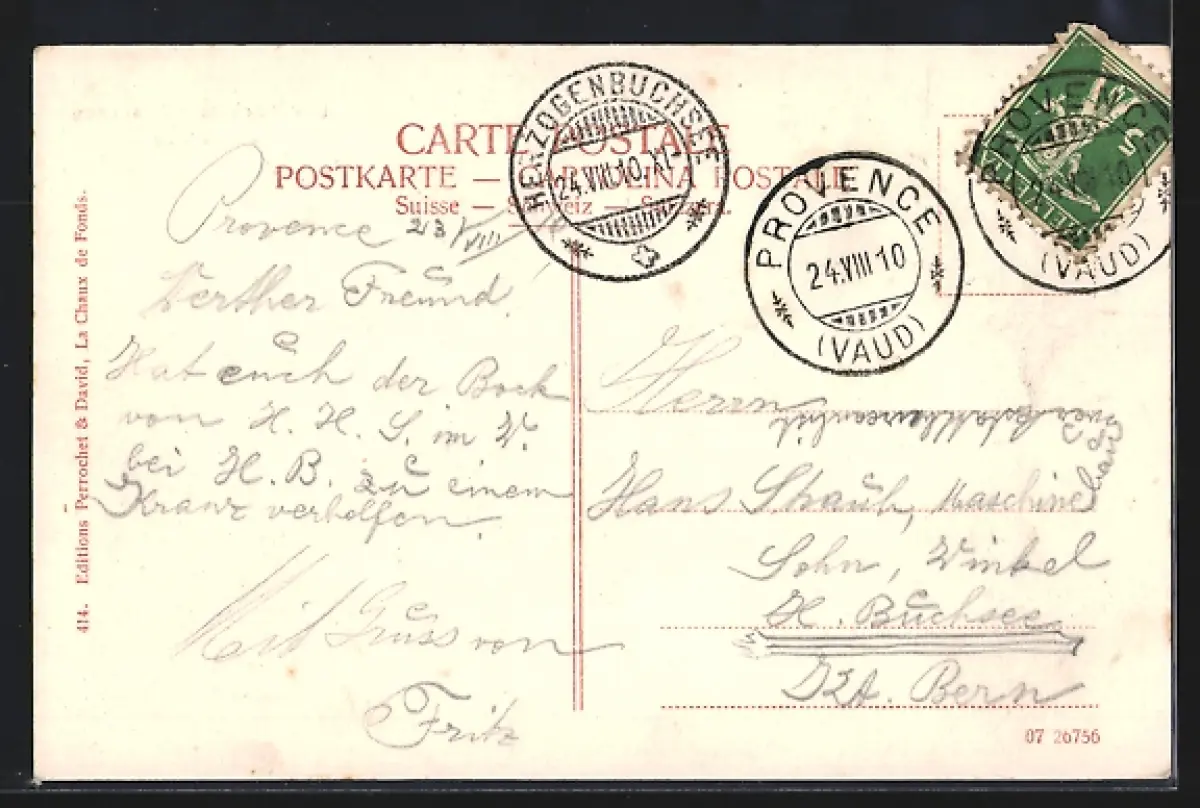 CARTE POSTALE
POSTKARTE — CARTOLINA POSTALE
Suisse — Schweiz — Svizzera.
HERZOGENBUCHSEE
24.VIII.10.XI-
PROVENCE
24.VIII 10
(VAUD)
PROVENCE
24.VIII 10
(VAUD)
HELVETIA
5
414. Editions Perrochet & David, La Chaux de Fonds.
Provence 23/VIII/10
Werther Freund
Hat euch der Bock
von H. H. S. im W.
bei H. B. zu einem
Kranz verholfen.
Mit Gruss von
Fritz
Herrn
Hans Straub, Maschine
Sohn, Winkel
H. Buchsee
Kt. Bern
07 26756